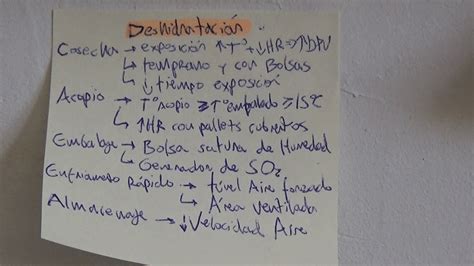 Deshidratación
Cosecha → exposición ↑T° + ↓HR ⇒ ↑DPV
↳ temprano y con Bolsas
↳ ↓ tiempo exposición
Acopio → T° acopio ≥ T° embalado ≥ 15°C
↳ ↑HR con pallets cubiertos
Embalaje → Bolsa satura de Humedad
↳ Generador de SO2
Enfriamiento Rápido → túnel Aire forzado
↳ Área ventilada
Almacenaje → ↓ Velocidad Aire